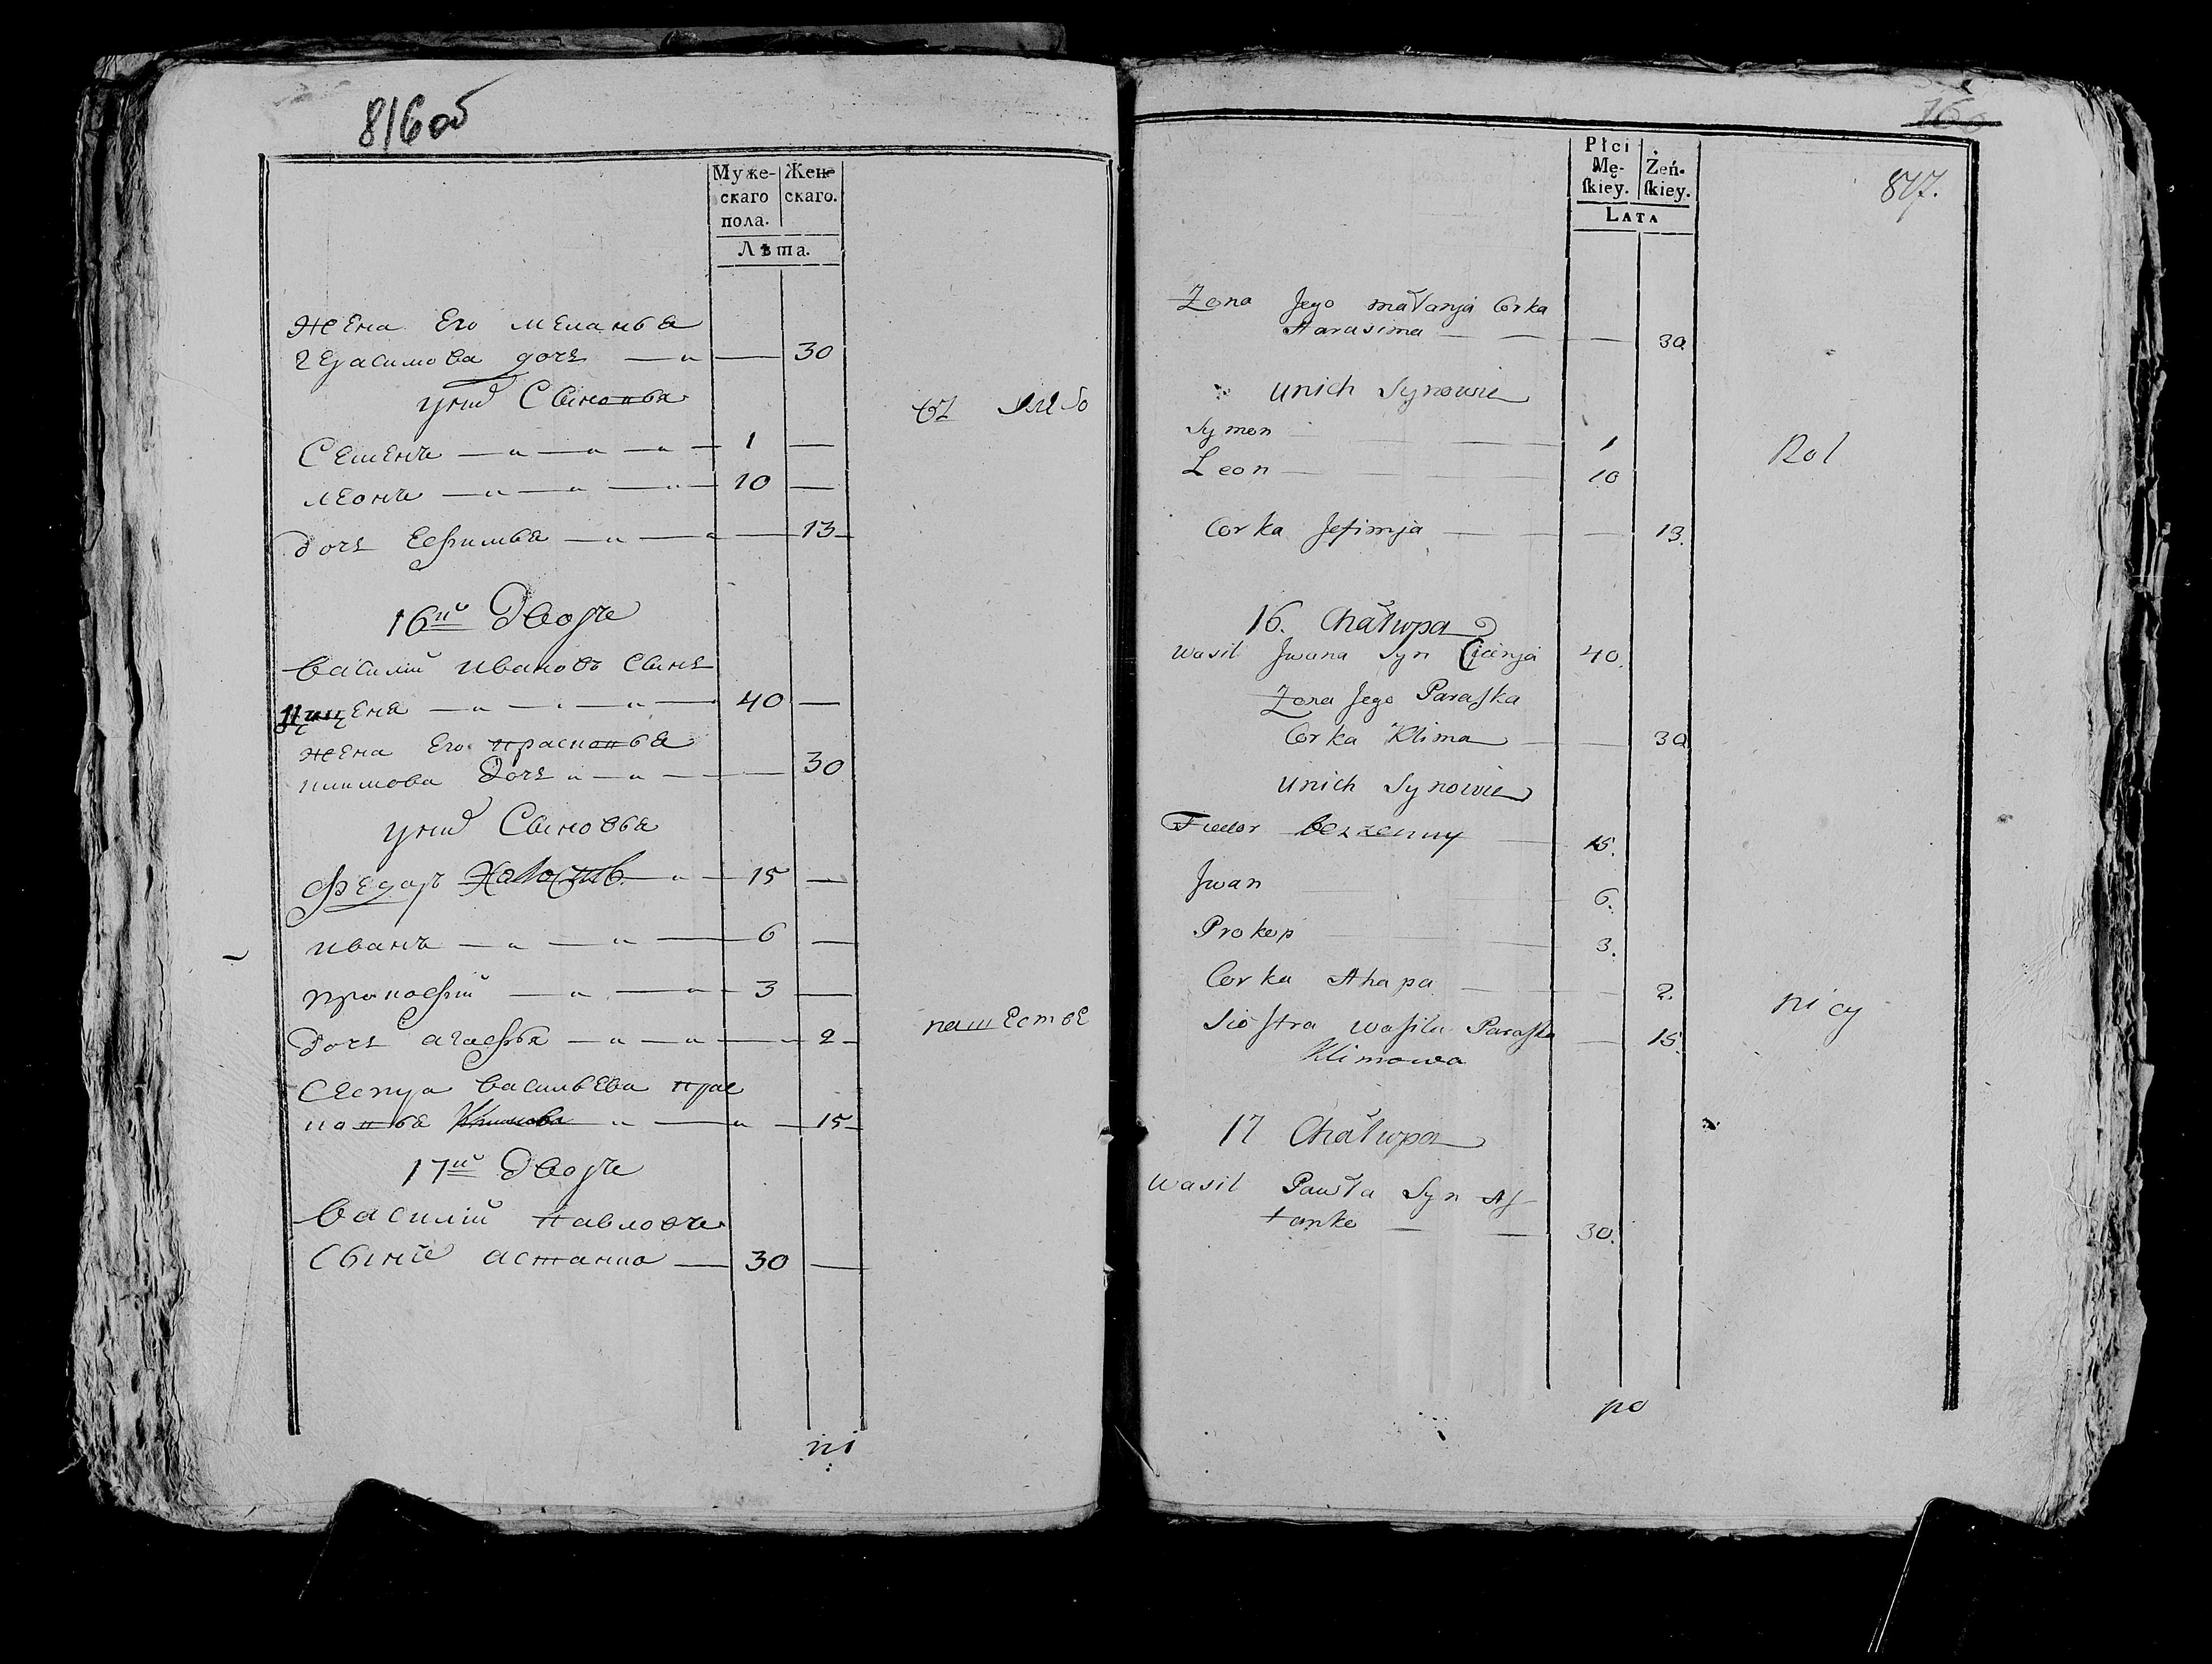 816об
Муже-
скаго
пола.
Жен-
скаго.
Лѣта.
жена Его меланья
герасимова дочь 30
унихъ Сыновья
Семенъ 1
леонъ 10
дочь Ефимья 13
16й Дворъ
василий ивановъ сынъ
40
жена его прасковья
климова дочь 30
унихъ Сыновья
федоръ Холостъ 15
иванъ 6
прокофий 3
дочь агафья 2
Сестра васильева прас
ковья Климова 15
17й Дворъ
василий павловъ
сынъ астанко 30
въ
пашестве
816
Płci
Mę-
ſkiey.
Żeń-
ſkiey.
LATA
817.
Zona Jego małanja Corka
Harasima 30
unich Synowie
Symon 1
Leon 10
Rol
Corka Jefimja 13.
16. Chałupa
Wasil Jwana Syn 40.
Zona Jego Paraſka
Corka Klima 30
unich Synowie
Fiedor bezzenny 15.
Jwan 6.
Prokop 3.
Corka Ahapa 2.
nicy
Sioſtra Waſila Paraſka 15.
Klimowa
17 Chałupa
Wasil Pawła Syn Aſ
tanko 30.
po